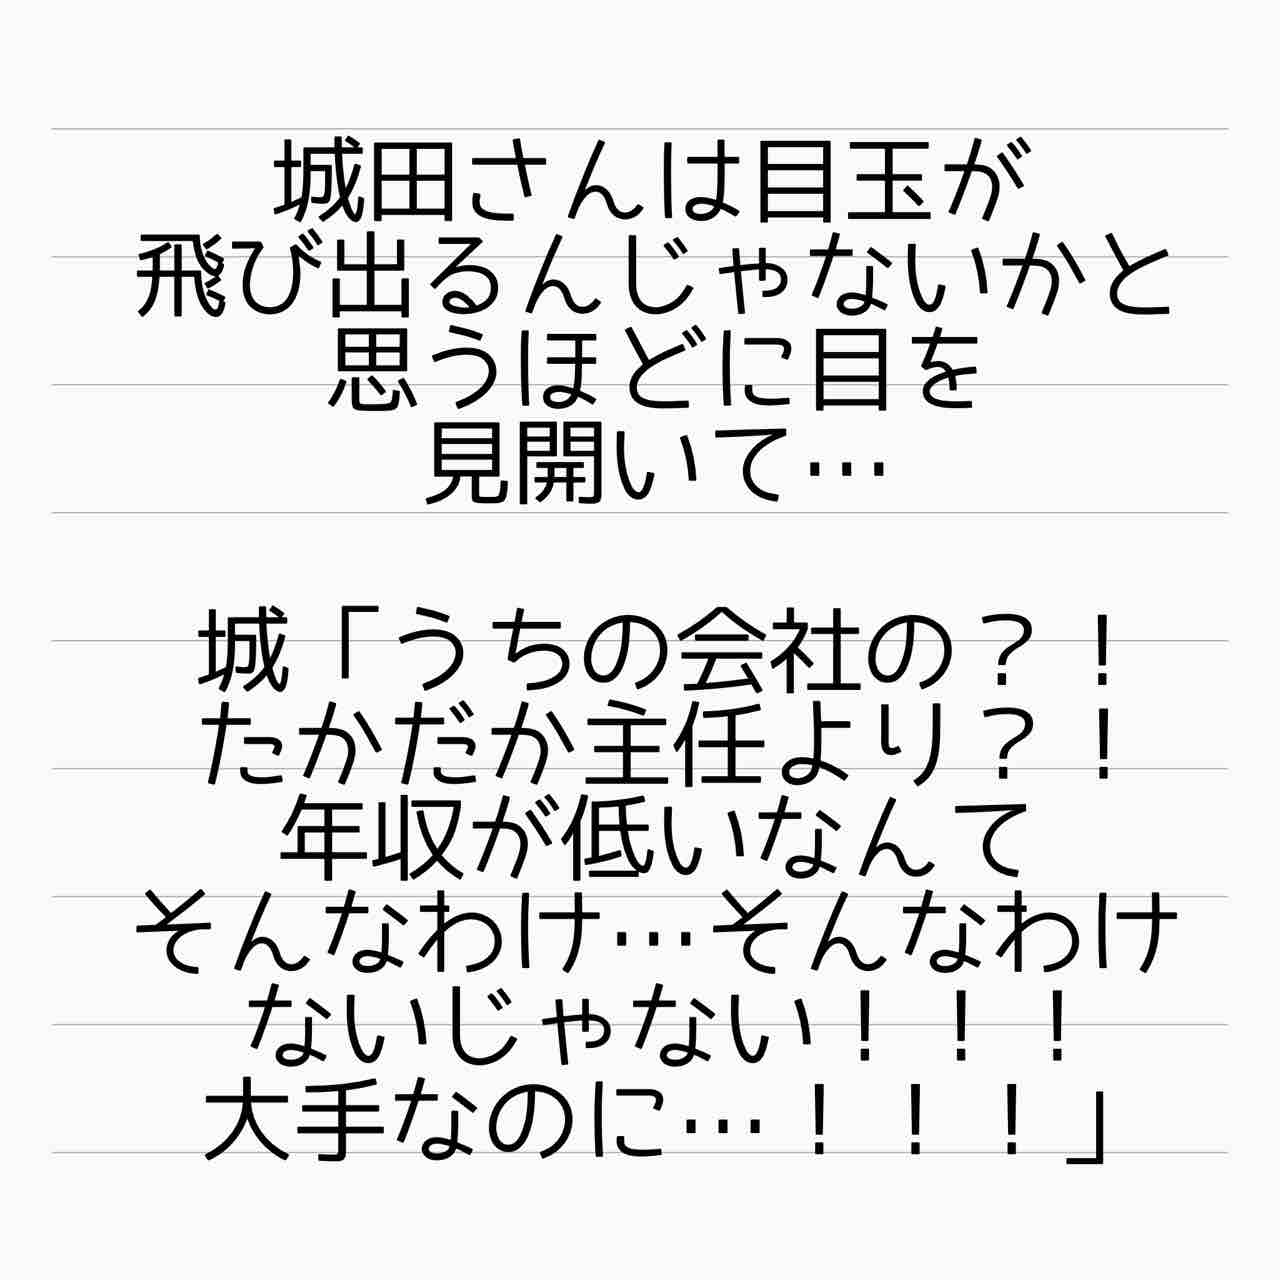 城田さんは目玉が
飛び出るんじゃないかと
思うほどに目を
見開いて…
城「うちの会社の？！
たかだか主任より？！
年収が低いなんて
そんなわけ…そんなわけ
ないじゃない！！！
大手なのに…！！！」